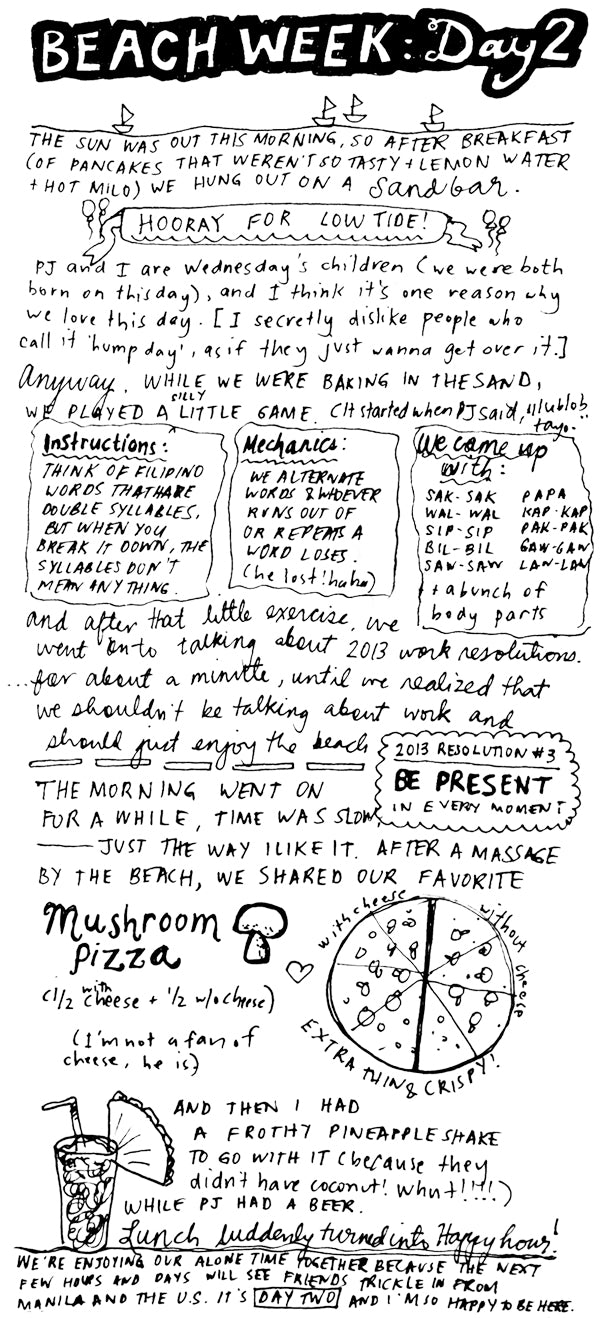 BEACH WEEK: Day 2
THE SUN WAS OUT THIS MORNING, SO AFTER BREAKFAST
(OF PANCAKES THAT WEREN'T SO TASTY + LEMON WATER
+ HOT MILO) WE HUNG OUT ON A Sandbar.
HOORAY FOR LOW TIDE!
PJ and I are Wednesday's children (we were both
born on this day), and I think it's one reason why
we love this day. [I secretly dislike people who
call it 'hump day', as if they just wanna get over it.]
Anyway. WHILE WE WERE BAKING IN THE SAND,
WE PLAYED A SILLY LITTLE GAME. (It started when PJ said, "lublob
tayo."
Instructions:
THINK OF FILIPINO
WORDS THAT HARE
DOUBLE SYLLABLES,
BUT WHEN YOU
BREAK IT DOWN, THE
SYLLABLES DON'T
MEAN ANYTHING.
Mechanics:
WE ALTERNATE
WORDS & WHOEVER
RUNS OUT OF
OR REPEATS A
WORD LOSES.
(he lost! haha)
We came up
with:
SAK-SAK PAPA
WAL-WAL KAP-KAP
SIP-SIP PAK-PAK
BIL-BIL GAW-GAW
SAW-SAW LAW-LAW
+ a bunch of
body parts
and after that little exercise, we
went on to talking about 2013 work resolutions.
...for about a minute, until we realized that
we shouldn't be talking about work and
should just enjoy the beach
2013 RESOLUTION #3
BE PRESENT
IN EVERY MOMENT
THE MORNING WENT ON
FOR A WHILE, TIME WAS SLOW,
—JUST THE WAY I LIKE IT. AFTER A MASSAGE
BY THE BEACH, WE SHARED OUR FAVORITE
Mushroom
pizza
(1/2 with cheese + 1/2 w/o cheese)
(I'm not a fan of
cheese, he is)
with cheese
without cheese
EXTRA THIN & CRISPY!
AND THEN I HAD
A FROTHY PINEAPPLE SHAKE
TO GO WITH IT (because they
didn't have coconut! Whut!!!!)
WHILE PJ HAD A BEER.
Lunch suddenly turned into Happy hour!
WE'RE ENJOYING OUR ALONE TIME TOGETHER BECAUSE THE NEXT
FEW HOURS AND DAYS WILL SEE FRIENDS TRICKLE IN FROM
MANILA AND THE U.S. IT'S DAY TWO AND I'M SO HAPPY TO BE HERE.